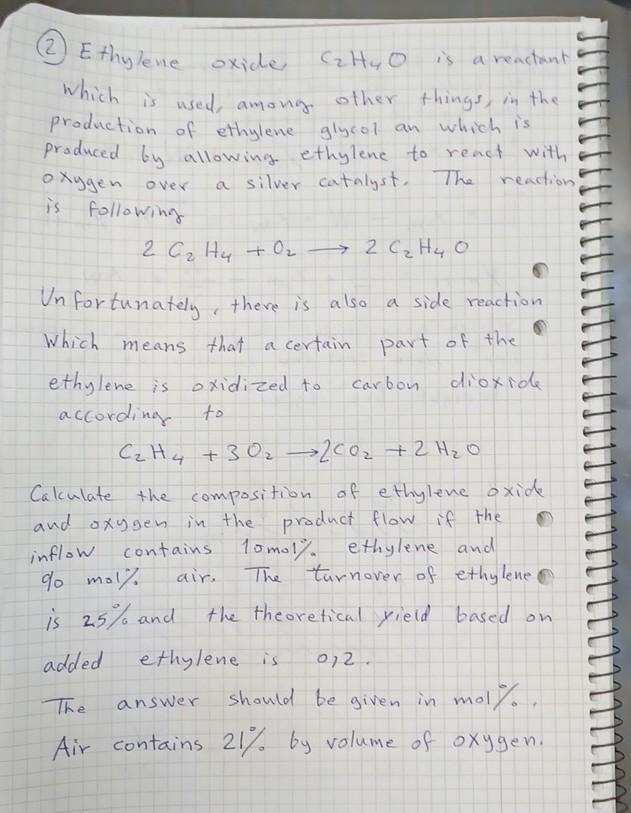 ② Ethylene oxide, C2H4O is a reactant
which is used, among other things, in the
production of ethylene glycol an which is
produced by allowing ethylene to react with
oxygen over a silver catalyst. The reaction
is following
2 C2H4 + O2 → 2 C2H4O
Unfortunately, there is also a side reaction
which means that a certain part of the
ethylene is oxidized to carbon dioxide
according to
C2H4 + 3O2 → 2CO2 + 2H2O
Calculate the composition of ethylene oxide
and oxygen in the product flow if the
inflow contains 10mol% ethylene and
90 mol% air. The turnover of ethylene
is 25% and the theoretical yield based on
added ethylene is 0,2.
The answer should be given in mol%.
Air contains 21% by volume of oxygen.